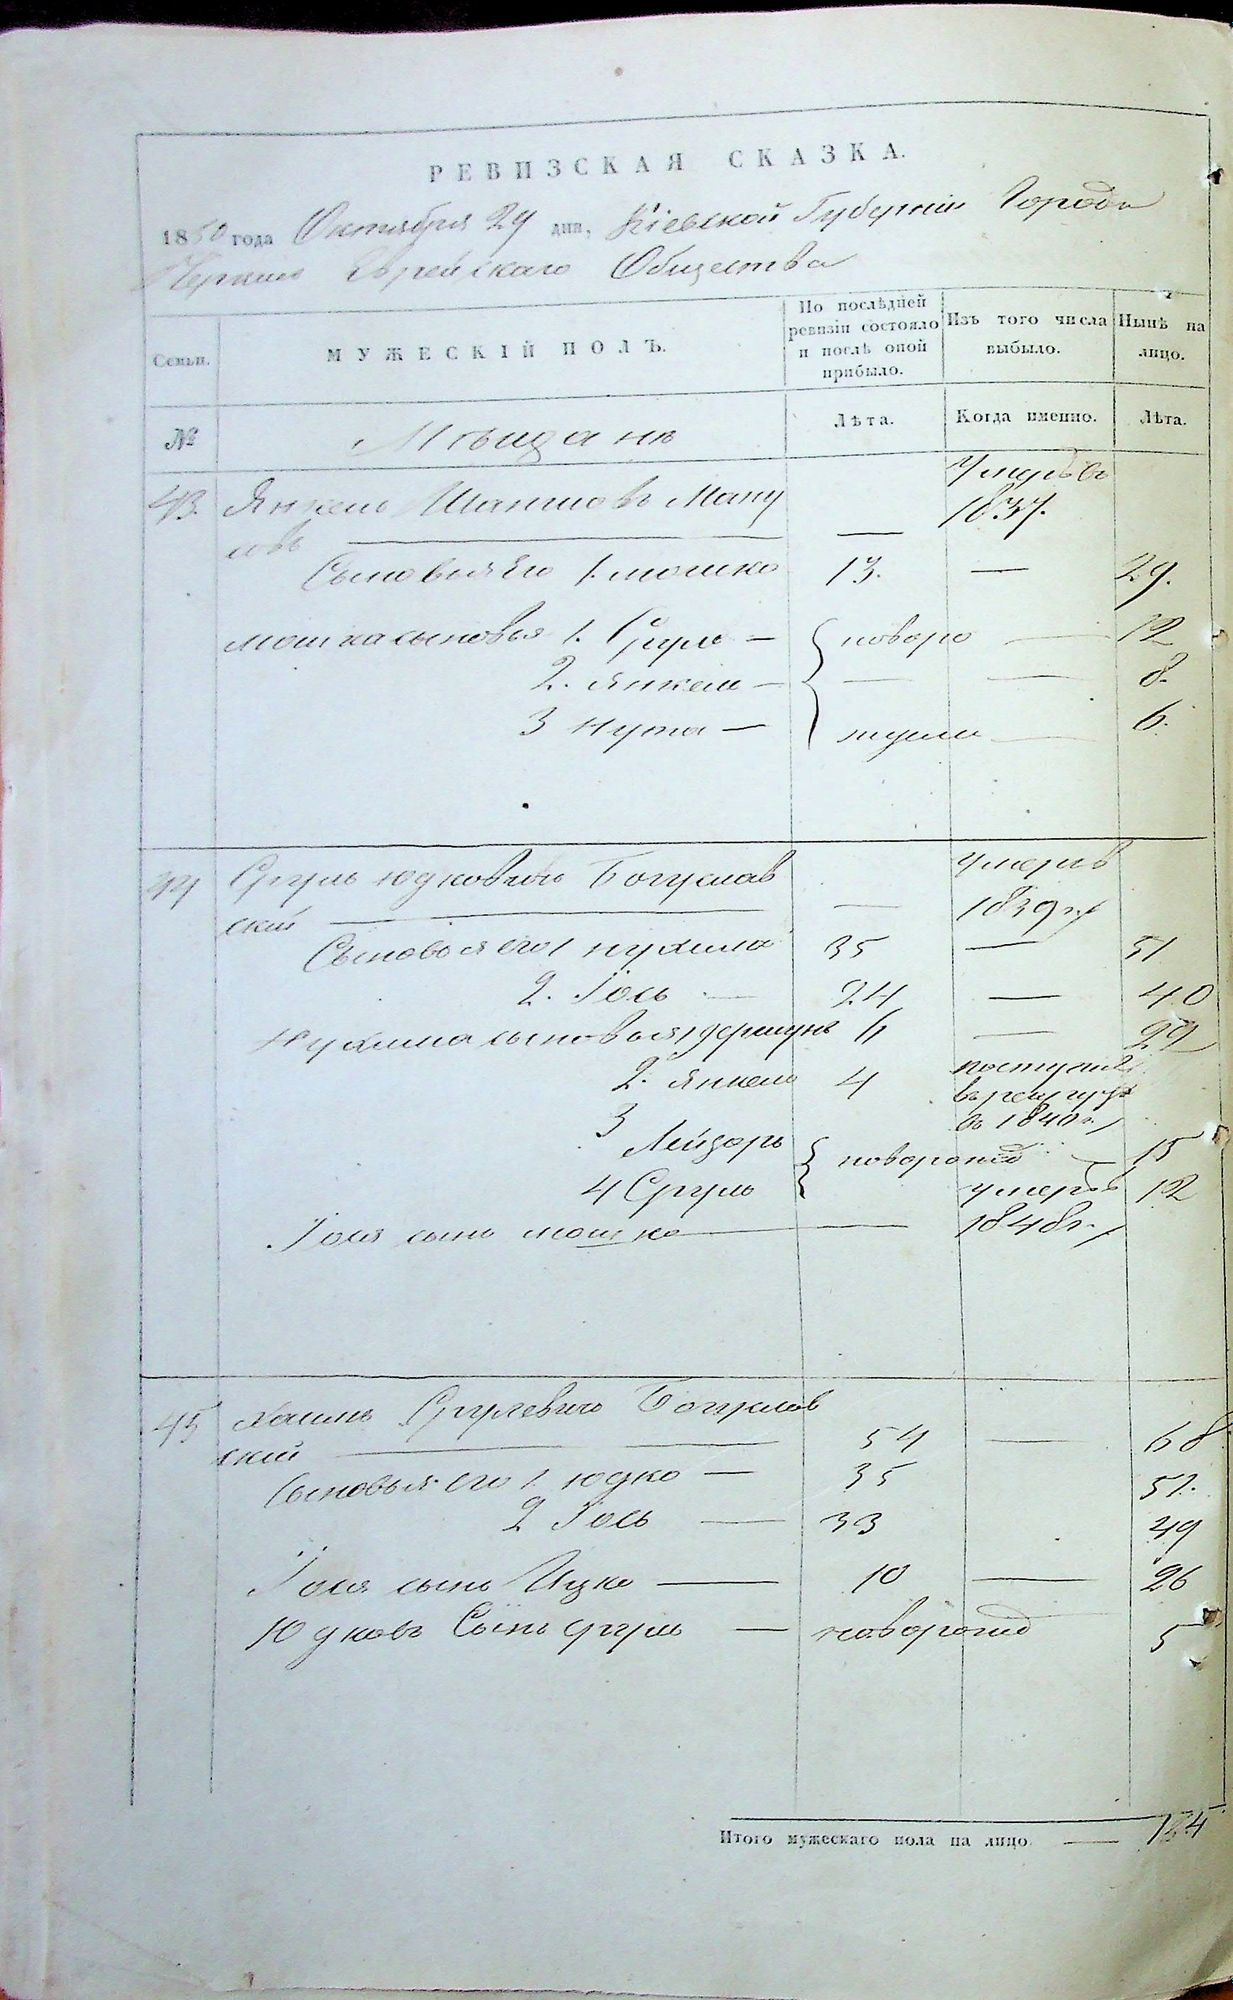 РЕВИЗСКАЯ СКАЗКА.
1850 года Октября 29 дня, Кіевской Губерніи Города
Еврейскаго Общества
Семьи.
МУЖЕСКІЙ ПОЛЪ.
По послѣдней ревизіи состояло и послѣ оной прибыло.
Изъ того числа выбыло.
Нынѣ на лицо.
№
Мѣщане
Лѣта.
Когда именно.
Лѣта.
43. Янкель Шапшовъ Ману — 1837.
совъ
Сыновья его 1. Мошко 13. — 29.
Мошка сыновья 1. Сруль — новоро — 12
2. Янкель — — — 8.
3 Нута — — 6.
44 Сруль Юдковичь Богуслав — умеръ
ский — 1839 г.
Сыновья его 1 Нухимъ 35 — 51
2. Іось — 24 — 40
Нухима сыновья 1 —
2. Янкель 4 поступилъ
въ рекруты
въ 1840 г.
3 Лейзоръ новорожд — 15
4 Сруль умеръ 12
Іося сынъ Мошко — 1848 г.
45 Хаимъ Срулевичь Богуслав
ский — 54 — 68
Сыновья его 1. Юдко — 35 51.
2 Іось — 33 49
Іося сынъ Ицко — 10 — 26
Юдковъ Сынъ Сруль — новорожд 5
Итого мужескаго пола на лицо. —